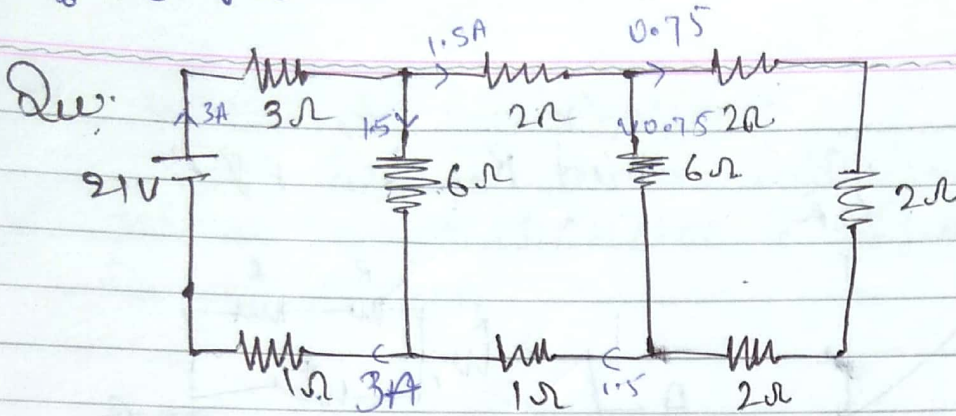 1.5A 0.75
Qu. 3A 3Ω 1.5 2Ω 0.75 2Ω
21V 6Ω 6Ω 2Ω
1Ω 3A 1Ω 1.5 2Ω